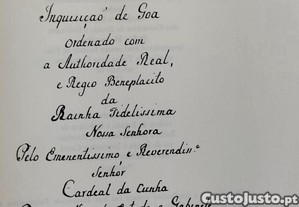 Inquisiçaõ de Goa
Ordenado com
a Authoridade Real,
e Regio Beneplacito
da
Rainha Fidelissima
Nossa Senhora
Pelo Emenentissimo e Reverendis.º
Senhór
Cardeal da Cunha
CustoJusto.pt